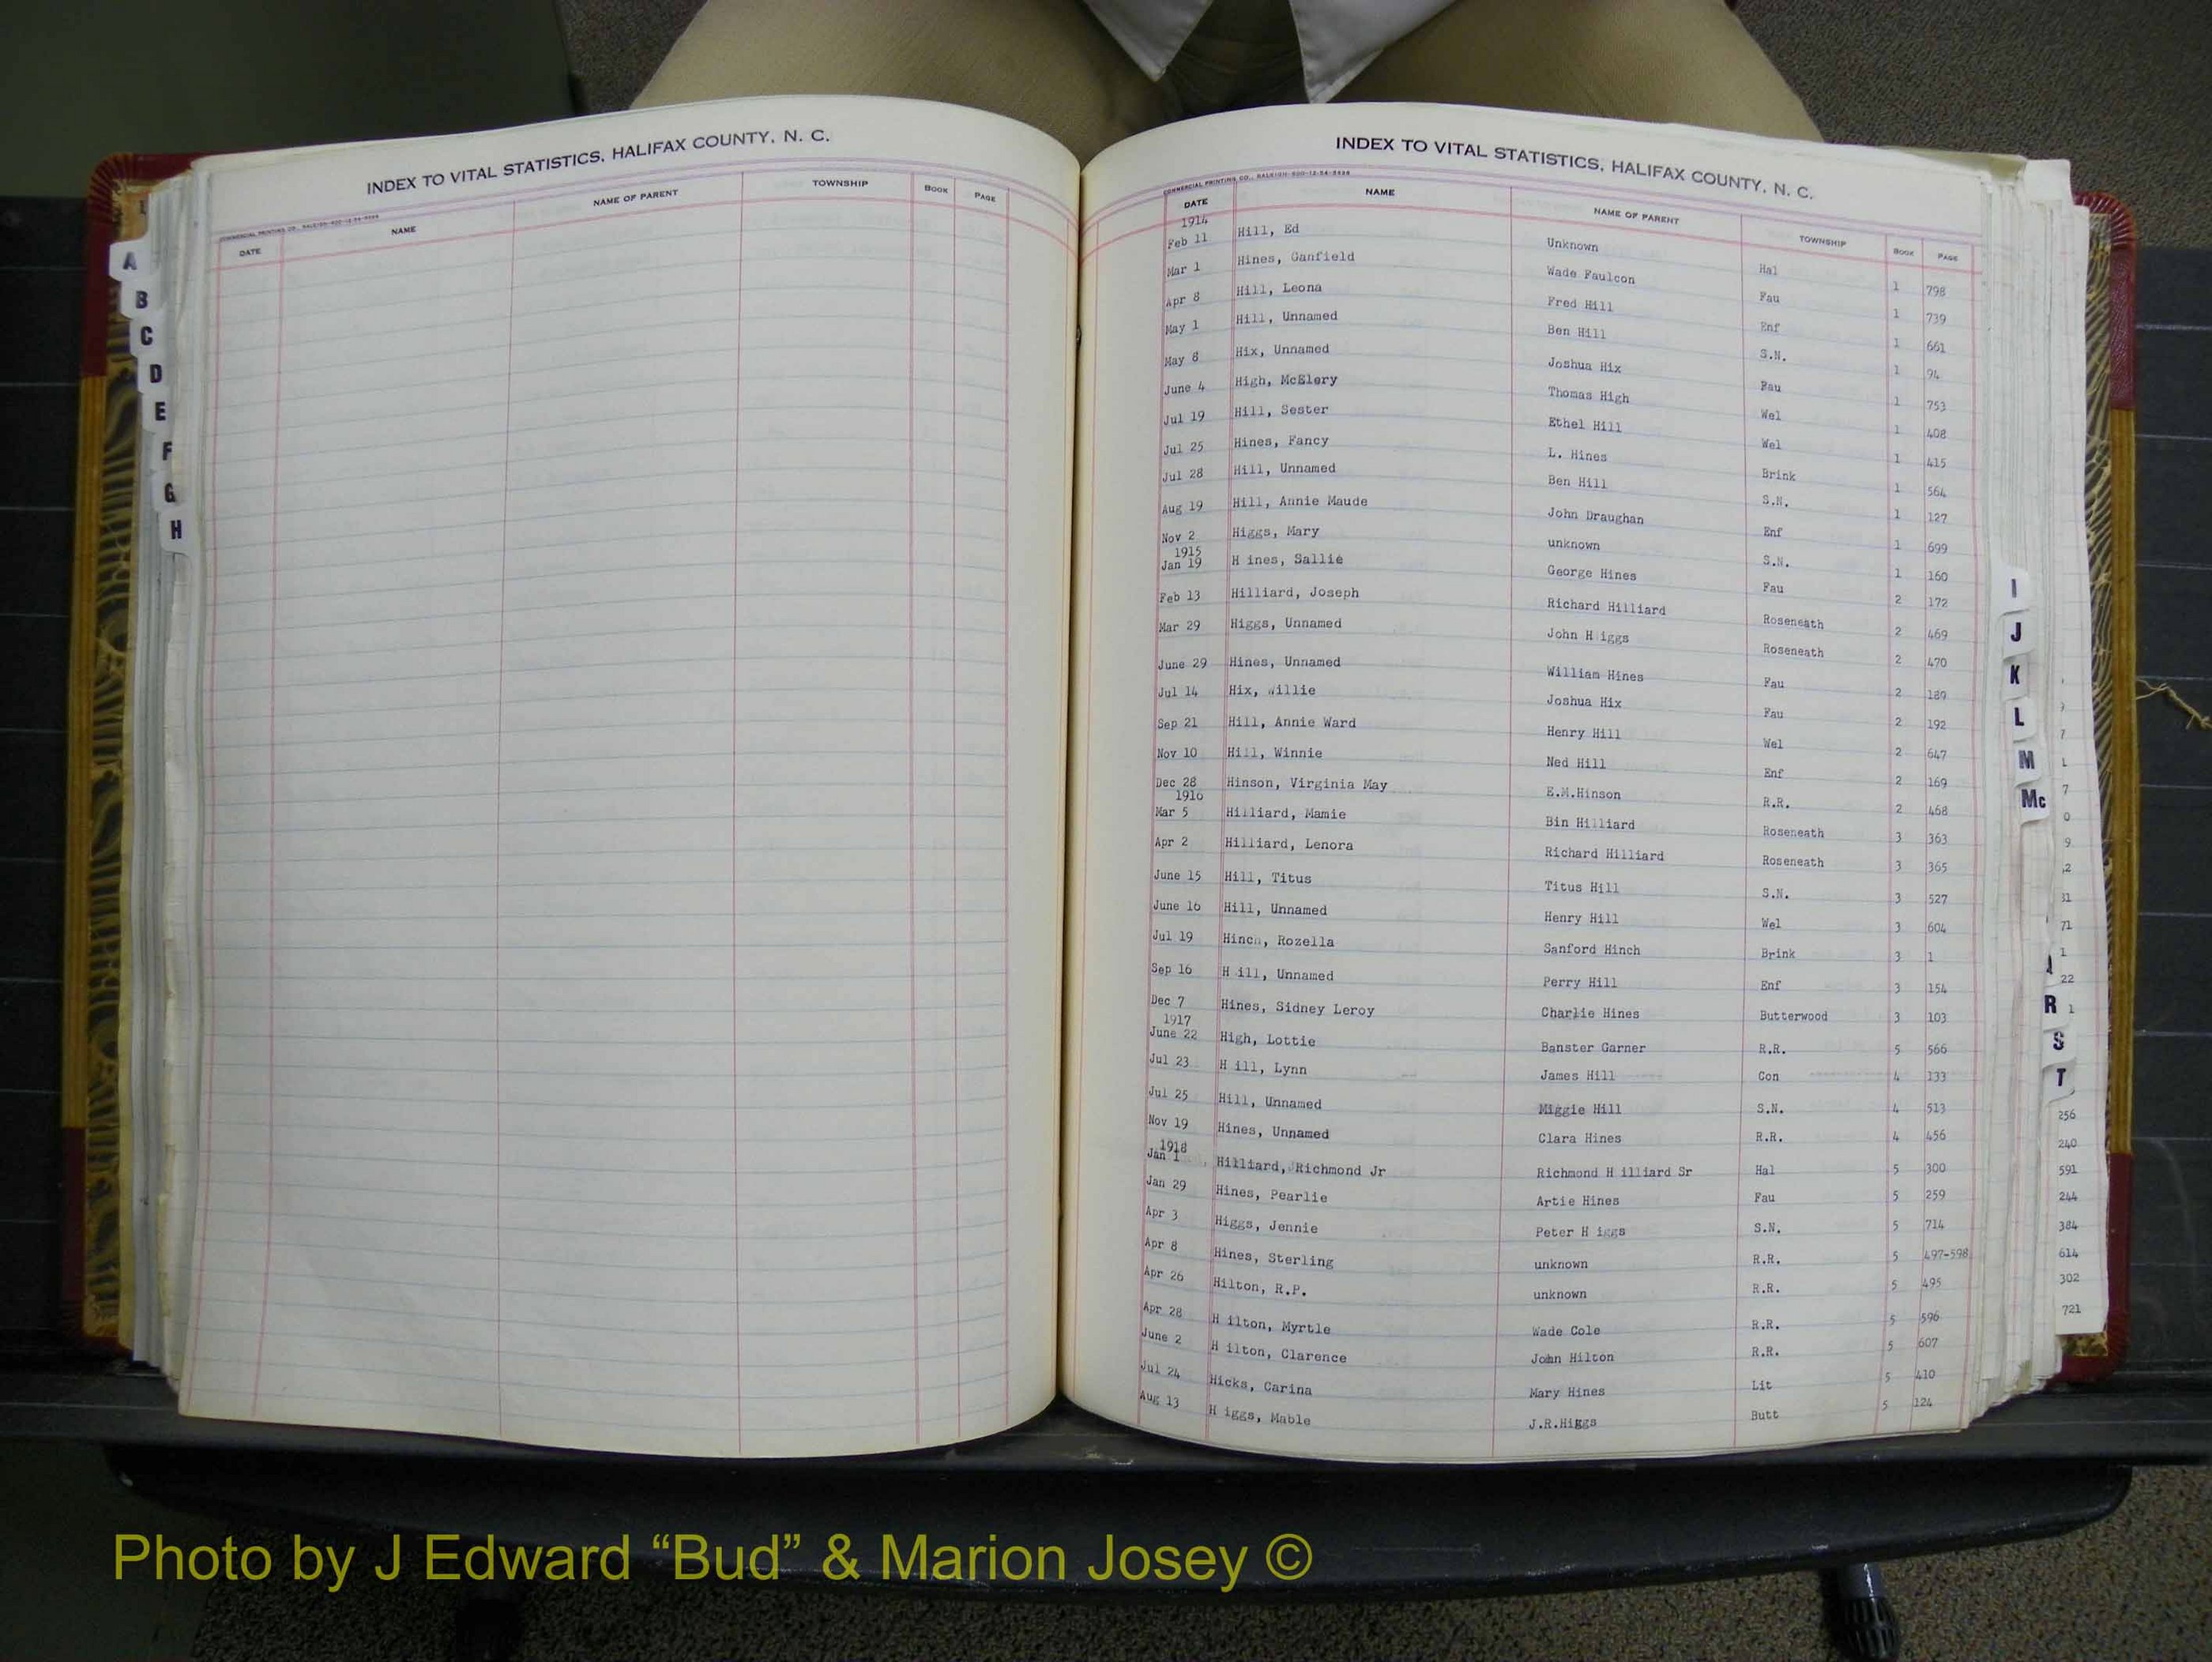 INDEX TO VITAL STATISTICS, HALIFAX COUNTY, N. C.
COMMERCIAL PRINTING CO., RALEIGH
DATE NAME NAME OF PARENT TOWNSHIP BOOK PAGE
A
B
C
D
E
F
G
H
INDEX TO VITAL STATISTICS, HALIFAX COUNTY, N. C.
COMMERCIAL PRINTING CO., RALEIGH
DATE NAME NAME OF PARENT TOWNSHIP BOOK PAGE
1914
Feb 11 Hill, Ed Unknown Hal 1 798
Mar 1 Hines, Ganfield Wade Faulcon Fau 1 739
Apr 8 Hill, Leona Fred Hill Enf 1 661
May 1 Hill, Unnamed Ben Hill S.N. 1 94
May 8 Hix, Unnamed Joshua Hix Fau 1 753
June 4 High, McElery Thomas High Wel 1 408
Jul 19 Hill, Sester Ethel Hill Wel 1 415
Jul 25 Hines, Fancy L. Hines Brink 1 564
Jul 28 Hill, Unnamed Ben Hill S.N. 1 127
Aug 19 Hill, Annie Maude John Draughan Enf 1 699
Nov 2 Higgs, Mary unknown S.N. 1 160
1915
Jan 19 H ines, Sallie George Hines Fau 2 172
Feb 13 Hilliard, Joseph Richard Hilliard Roseneath 2 469
Mar 29 Higgs, Unnamed John H iggs Roseneath 2 470
June 29 Hines, Unnamed William Hines Fau 2 189
Jul 14 Hix, Willie Joshua Hix Fau 2 192
Sep 21 Hill, Annie Ward Henry Hill Wel 2 647
Nov 10 Hill, Winnie Ned Hill Enf 2 169
Dec 28 Hinson, Virginia May E.M.Hinson R.R. 2 468
1916
Mar 5 Hilliard, Mamie Bin Hilliard Roseneath 3 363
Apr 2 Hilliard, Lenora Richard Hilliard Roseneath 3 365
June 15 Hill, Titus Titus Hill S.N. 3 527
June 16 Hill, Unnamed Henry Hill Wel 3 604
Jul 19 Hinch, Rozella Sanford Hinch Brink 3 1
Sep 16 H ill, Unnamed Perry Hill Enf 3 154
Dec 7 Hines, Sidney Leroy Charlie Hines Butterwood 3 103
1917
June 22 High, Lottie Banster Garner R.R. 5 566
Jul 23 H ill, Lynn James Hill Con 4 133
Jul 25 Hill, Unnamed Miggie Hill S.N. 4 513
Nov 19 Hines, Unnamed Clara Hines R.R. 4 456
1918
Jan 1 Hilliard, Richmond Jr Richmond H illiard Sr Hal 5 300
Jan 29 Hines, Pearlie Artie Hines Fau 5 259
Apr 3 Higgs, Jennie Peter H iggs S.N. 5 714
Apr 8 Hines, Sterling unknown R.R. 5 497-598
Apr 26 Hilton, R.P. unknown R.R. 5 495
Apr 28 H ilton, Myrtle Wade Cole R.R. 5 596
June 2 H ilton, Clarence John Hilton R.R. 5 607
Jul 24 Hicks, Carina Mary Hines Lit 5 410
Aug 13 H iggs, Mable J.R.Higgs Butt 5 124
I
J
K
L
M
Mc
R
S
T
22
256
240
591
244
384
614
302
721
Photo by J Edward “Bud” & Marion Josey ©